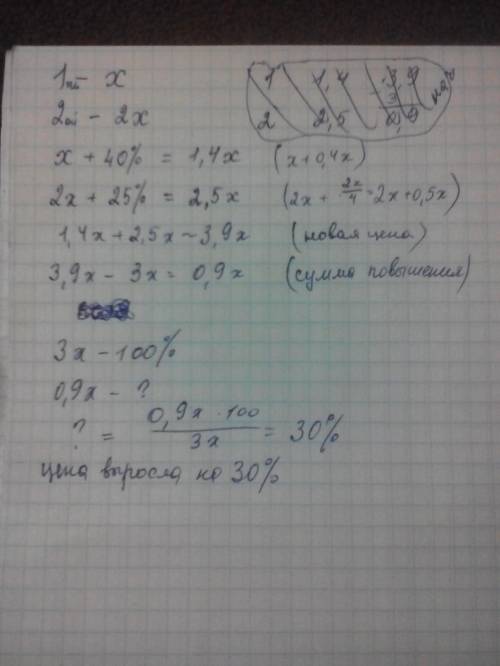 1ый - x
2ой - 2x
x + 40% = 1,4x (x + 0,4x)
2x + 25% = 2,5x (2x + 2x/4 = 2x + 0,5x)
1,4x + 2,5x - 3,9x (новая цена)
3,9x - 3x = 0,9x (сумма повышения)
3x - 100%
0,9x - ?
? = 0,9x · 100 / 3x = 30%
цена выросла на 30%
1 1,4
2 2,5 0,9